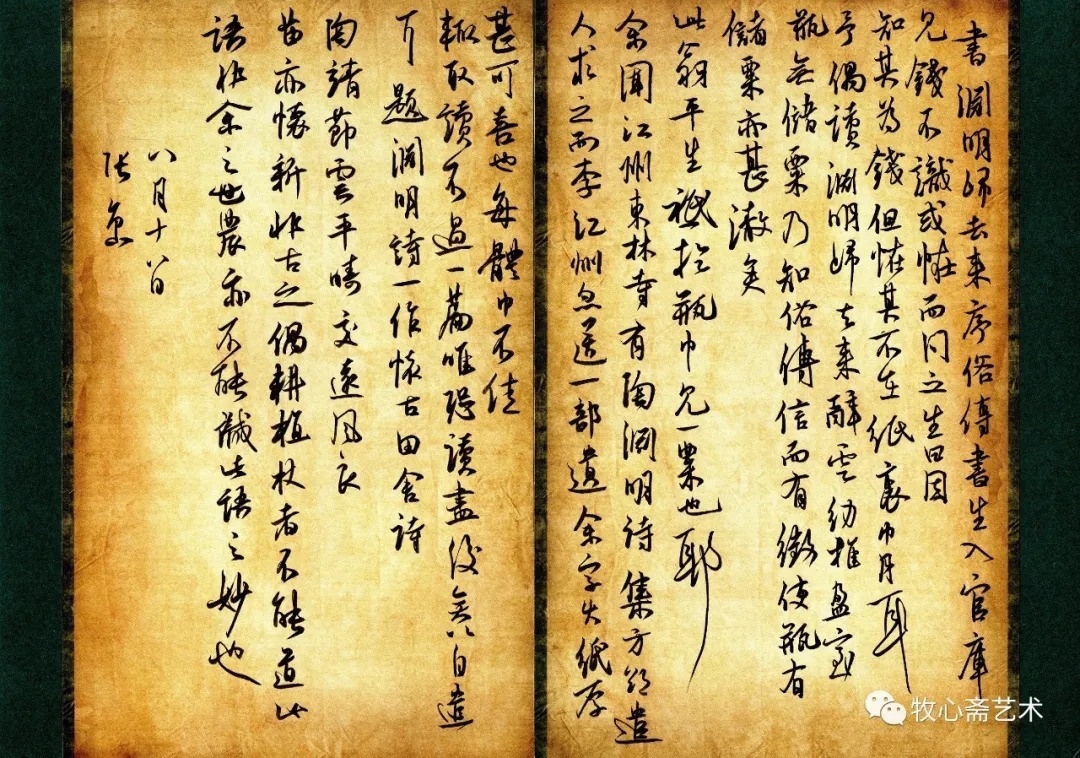 書淵明歸去來序俗傳書生入官庫
見錢不識或怪而问之生曰固
知其為錢但怪其不在紙裹中耳
予偶讀淵明歸去來辭云幼稚盈室
瓶無儲粟乃知俗傳信而有徵使瓶有
儲粟亦甚微矣
此翁平生祗於瓶中見一粟也耶
余聞江州東林寺有陶淵明詩集方欲遣
人求之而李江州忽送一部遺余字大紙厚
甚可喜也每體中不佳
輒取讀不過一篇唯恐讀盡後無以自遣
耳 題淵明詩一作懷古田舍詩
陶靖節云平疇交遠風良
苗亦懷新非古之偶耕植杖者不能道此
語非余之世農亦不能識此語之妙也
八月十八日
張
牧心斋艺术